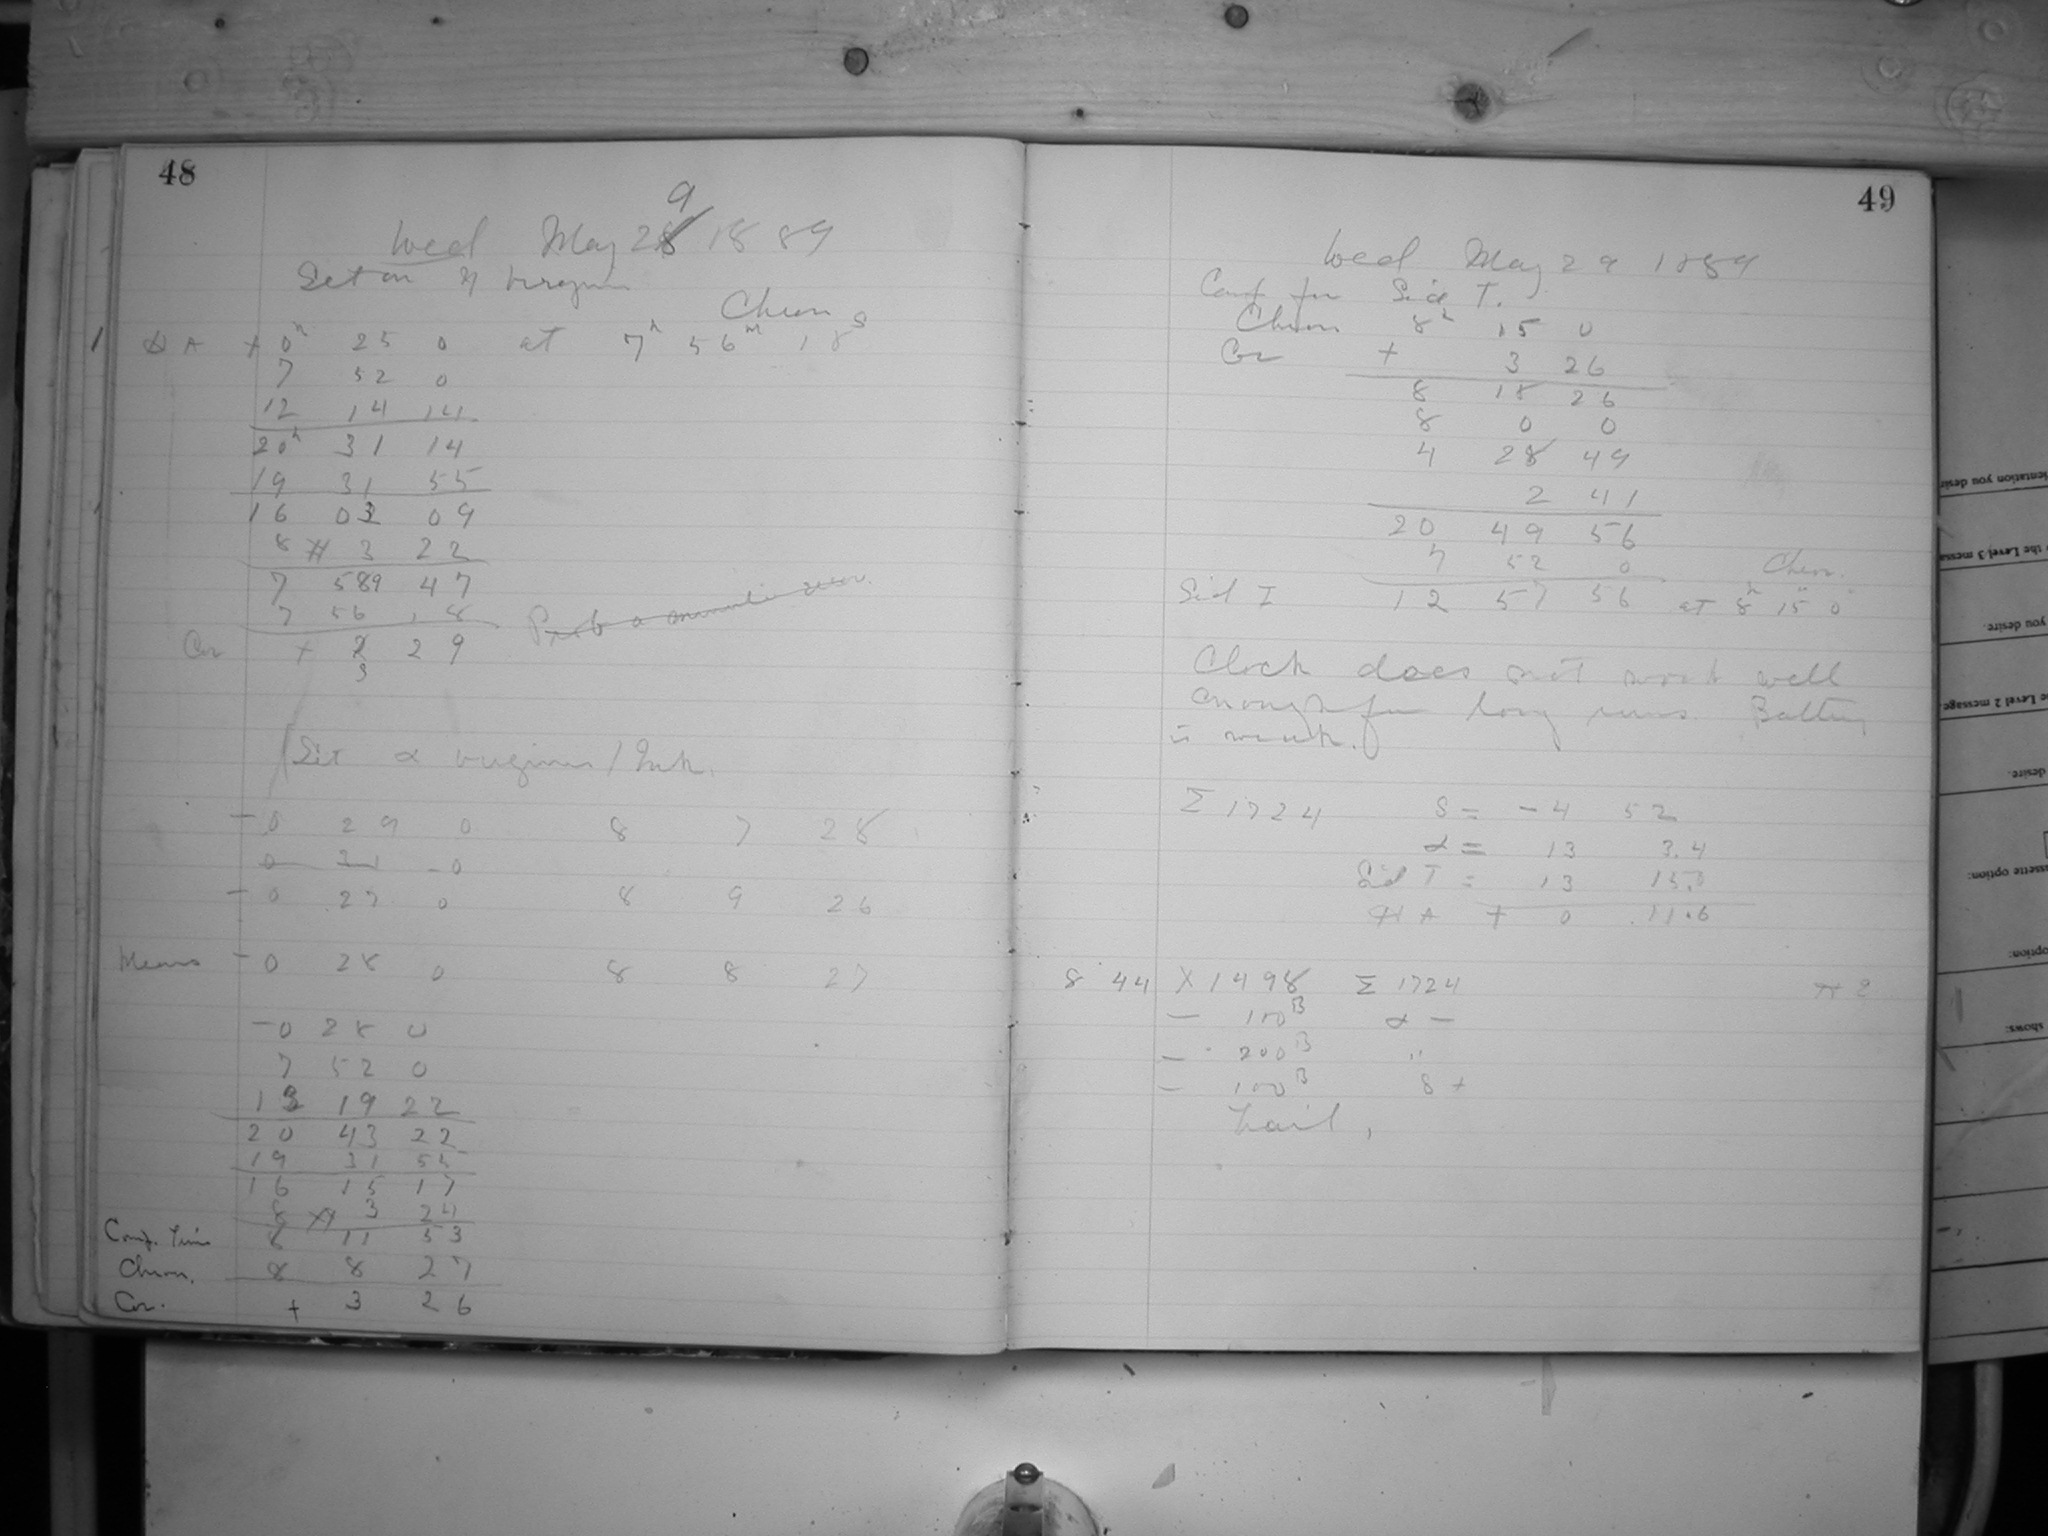 48
Wed May 29 1889
Set on η Virginis
Chron
HA + 0h 25 0 at 7h 56m 18s
7 52 0
12 14 14
20h 31 14
19 31 55
16 03 09
8 # 3 22
7 589 47
7 56 18
Cor + 3 29
Prob a minute error
Set α Virginis
- 0 29 0 8 7 28
0 31 0
- 0 27 0 8 9 26
Means - 0 28 0 8 8 27
- 0 28 0
7 52 0
13 19 22
20 43 22
19 31 55
16 15 17
8 3 24
Comp. Time 8 11 53
Chron. 8 8 27
Cor. + 3 26
49
Wed May 29 1889
Comp for Sid T.
Chron 8h 15 0
Cor + 3 26
8 18 26
8 0 0
4 28 49
2 41
20 49 56
7 52 0
Chron.
Sid T 12 57 56 at 8h 15m 0
Clock does not work well
enough for long runs. Battery
is weak.
Σ 1724 δ = - 4 52
α = 13 3.4
Sid T = 13 15.0
HA + 0 11.6
8 44 X 1498 Σ 1724
— 100B α —
— 200B "
— 100B δ +